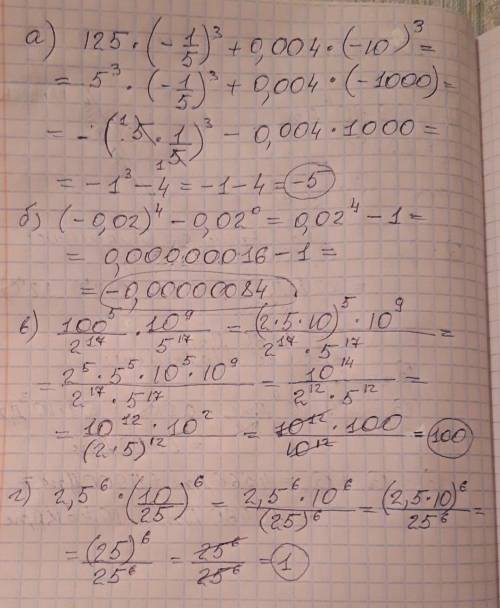 а) 125 · (-1/5)³ + 0,004 · (-10)³ =
= 5³ · (-1/5)³ + 0,004 · (-1000) =
= -(¹5 · 1/5₁)³ - 0,004 · 1000 =
= -1³ - 4 = -1 - 4 = -5
б) (-0,02)⁴ - 0,02⁰ = 0,02⁴ - 1 =
= 0,00000016 - 1 =
= -0,00000084
в) 100⁵/2¹⁷ · 10⁹/5¹⁷ = (2·5·10)⁵ · 10⁹/2¹⁷ · 5¹⁷ =
= 2⁵ · 5⁵ · 10⁵ · 10⁹/2¹⁷ · 5¹⁷ = 10¹⁴/2¹² · 5¹² =
= 10¹² · 10²/(2·5)¹² = 10¹² · 100/10¹² = 100
г) 2,5⁶ · (10/25)⁶ = 2,5⁶ · 10⁶/(25)⁶ = (2,5·10)⁶/25⁶ =
= (25)⁶/25⁶ = 25⁶/25⁶ = 1